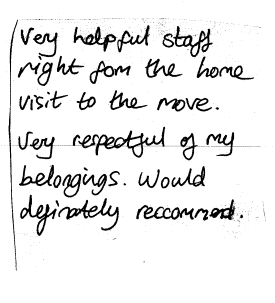 Very helpful staff
right fom the home
visit to the move.
Very respectful of my
belongings. Would
definately reccommend.